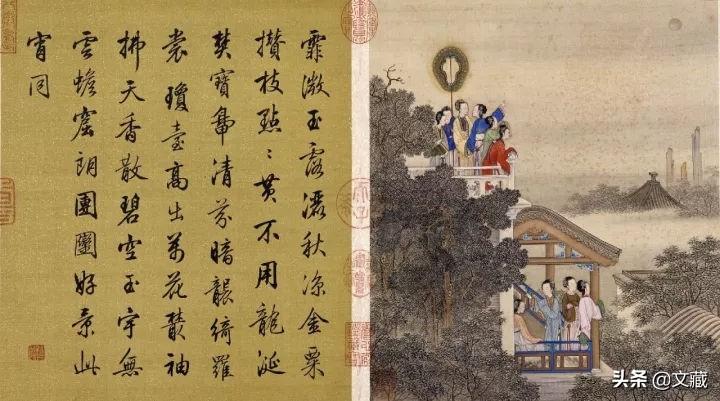 霏微玉露灑秋涼金粟
攢枝點點黃不用龍涎
焚寶鼎清芬暗襲綺羅
裳瓊臺高出萬花叢袖
拂天香散碧空玉宇無
雲蟾窟朗團圞好景此
宵同
头条 @文藏